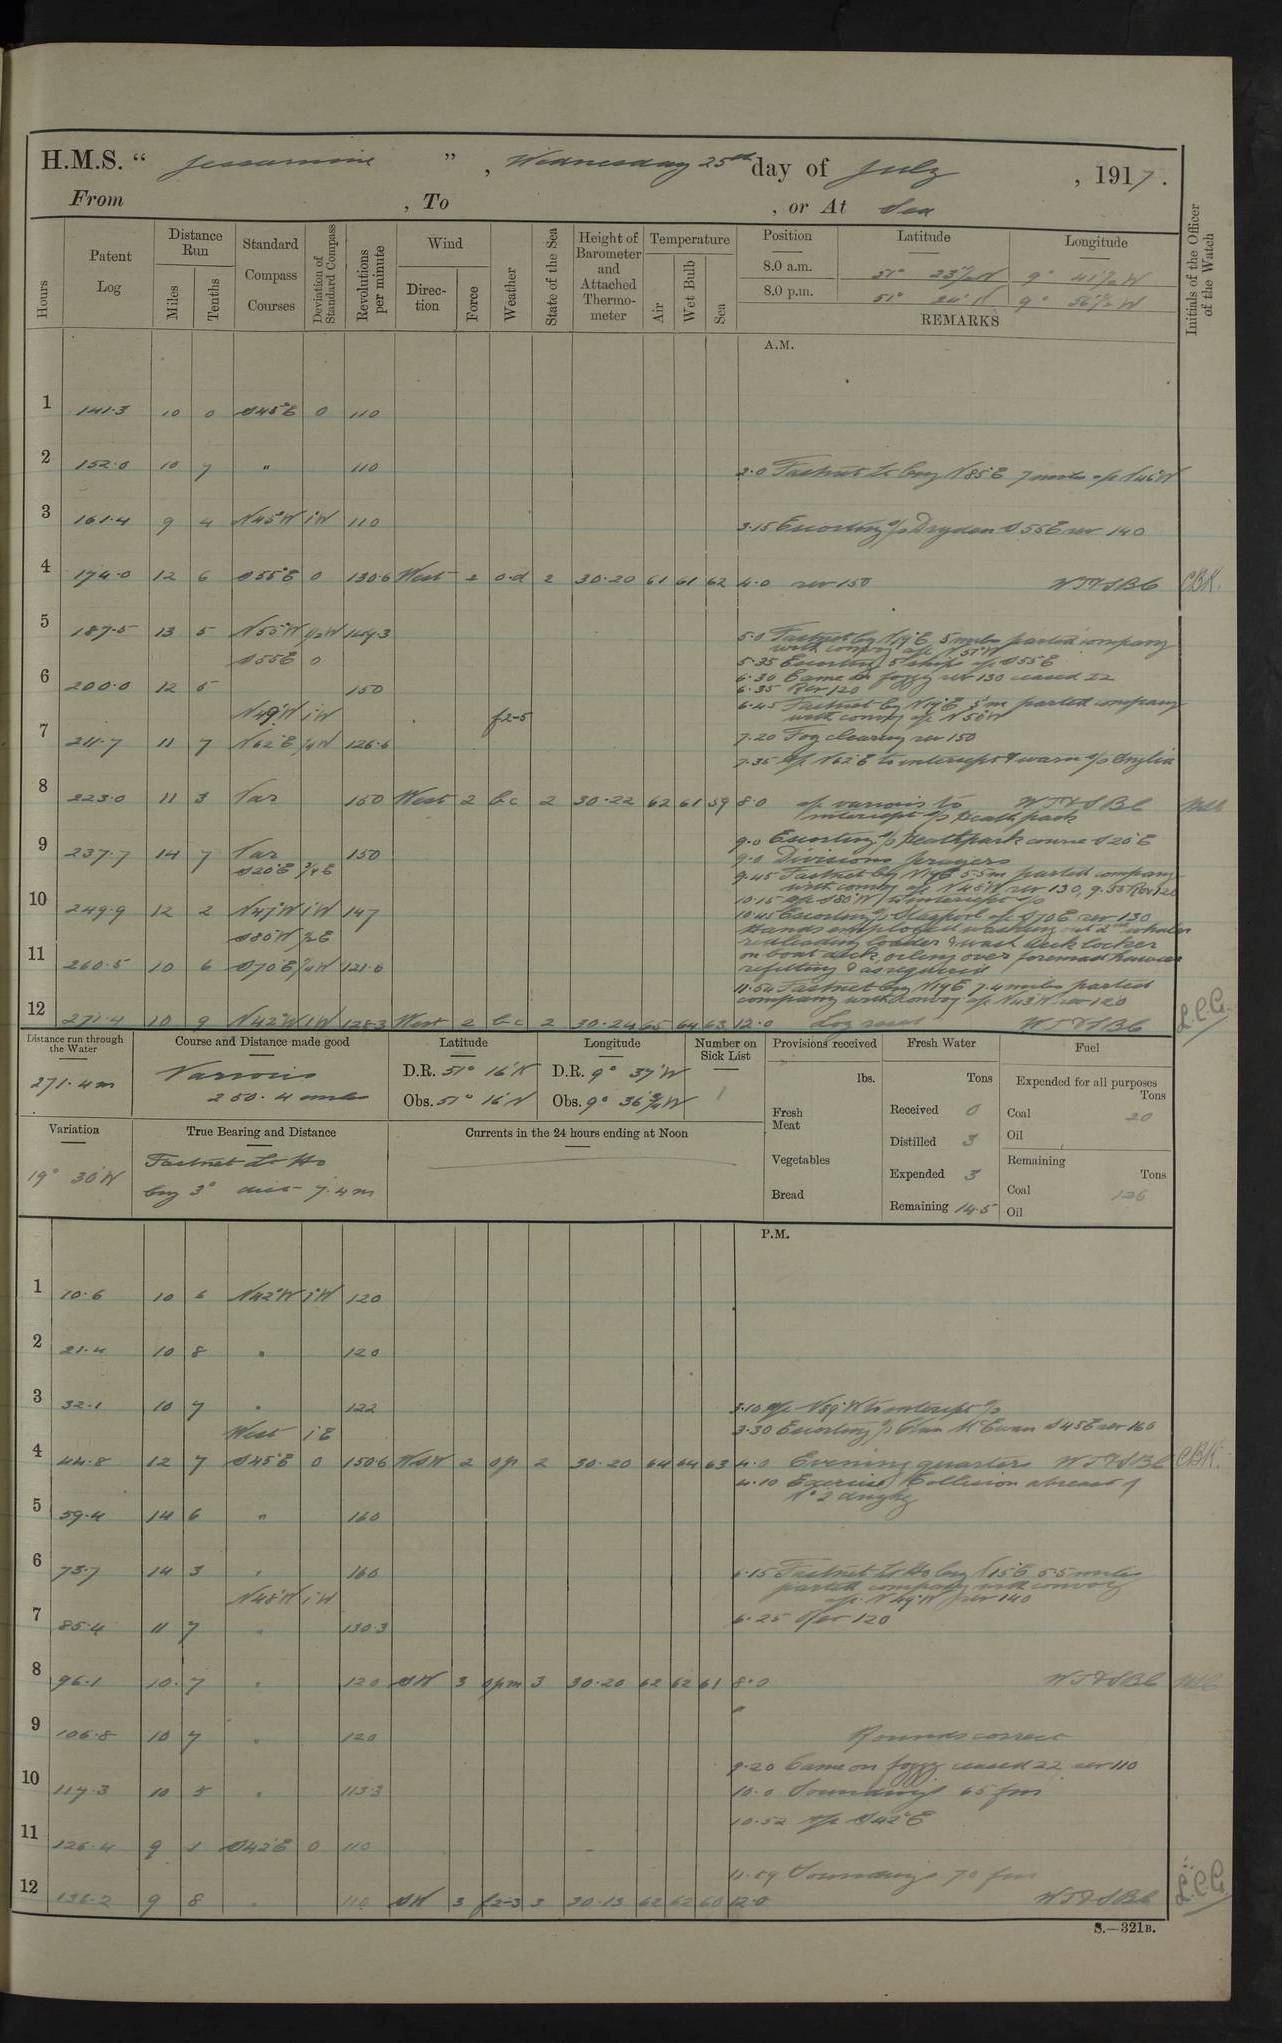 H.M.S. “ Jessamine ” , Wednesday 25th day of July , 1917.
From , To , or At Sea
Hours Patent Log Distance Run Miles Tenths Standard Compass Courses Deviation of Standard Compass Revolutions per minute Wind Direction Force Weather State of the Sea Height of Barometer and Attached Thermometer Temperature Air Wet Bulb Sea Position Latitude Longitude Initials of the Officer of the Watch
8.0 a.m. 51° 23½ N 9° 41½ W
8.0 p.m. 51° 24' N 9° W
REMARKS
A.M.
1 141.3 10 0 S45E 0 110
2 152.0 10 7 " 110 2.0 Fastnet Lt brg N85E 7 miles a/c N46W
3 161.4 9 4 N45W 1W 110 3.15 Escorting s/s Dryden S55E rev 140
4 174.0 12 6 S55E 0 130.6 West 2 o.d 2 30.20 61 61 62 4.0 rev 150 WT&SBC CBK.
5 187.5 13 5 N55W ½W 149.3 5.0 Fastnet brg N19E 5 miles parted company
with convoy a/c N55W
S55E 0 5.35 Escorting 5 ships a/c S55E
6 200.0 12 5 150 6.30 Came on foggy rev 130 ceased ZZ
6.35 Rev 120
N49W 1W f2-5 6.45 Fastnet brg N19E 5m parted company
with convoy a/c N58W
7 211.7 11 7 N62E ¼W 126.6 7.20 Fog clearing rev 150
7.35 a/c N62E to intercept & warn s/s Anglia
8 223.0 11 3 Var 150 West 2 b.c 2 30.22 62 61 59 8.0 a/c various to WT&SBC
intercept s/s Heathpark
9 237.7 14 7 Var 150 9.0 Escorting s/s Heathpark course S20E
S20E ¾E 9.0 Divisions prayers
9.45 Fastnet brg N19E 5.5m parted company
with convoy a/c N48W rev 130, 9.55 Rev 120
10 249.9 12 2 N47W 1W 147 10.15 a/c S80W to intercept s/s
S80W ¾E 10.45 Escorting s/s a/c S70E rev 130
Hands employed washing out 2nd whaler
11 260.5 10 6 S70E ¼W 121.6 redleading locker & wash deck locker
on boat deck, oiling over foremast hawser
refitting & as required
11.54 Fastnet brg N19E 7.4 miles parted
company with convoy a/c N43W rev 120
12 271.4 10 9 N42W 1W 128.3 West 2 b.c 2 30.24 65 64 63 12.0 Log reset WT&SBC L.C.G.
Distance run through the Water Course and Distance made good Latitude Longitude Number on Sick List Provisions received Fresh Water Fuel
271.4m Various 250.4 miles D.R. 51° 16' N D.R. 9° 37' W 1
Obs. 51° 16' N Obs. 9° 36¾ W
lbs. Tons Expended for all purposes Tons
Fresh Meat Received 0 Coal 20
Distilled 3 Oil
Variation True Bearing and Distance Currents in the 24 hours ending at Noon
19° 30' W Fastnet Lt Ho
brg 3° dist 7.4m
Vegetables Expended 3 Remaining Tons
Bread Remaining 14.5 Coal 126
Oil
P.M.
1 10.6 10 6 N42W 1W 120
2 21.4 10 8 " 120
3 32.1 10 7 " 122 3.10 a/c N89W to intercept s/s
West 1E 3.30 Escorting s/s Clan McEwan S45E rev 160
4 44.8 12 7 S45E 0 150.6 WSW 2 op 2 30.20 64 64 63 4.0 Evening quarters WT&SBC CBK.
4.10 Exercised Collision abreast of
No 2 dinghy
5 59.4 14 6 " 160
6 73.7 14 3 " 160 6.15 Fastnet Lt Ho brg N15E 5.5 miles
parted company with convoy
N48W 1W a/c N49W rev 140
7 85.4 11 7 " 130.3 6.25 Rev 120
8 96.1 10 7 " 120 SW 3 opm 3 30.20 62 62 61 8.0 WT&SBC
9 106.8 10 7 " 120 Rounds correct
9.20 Came on foggy ceased ZZ rev 110
10 117.3 10 5 " 113.3 10.0 Soundings 65 fms
10.52 a/c S42E
11 126.4 9 1 S42E 0 110
11.59 Soundings 70 fms
12 136.2 9 8 " 110 SW 3 f2-3 3 30.13 62 62 60 12.0 WT&SBC L.C.G.
S.—321B.